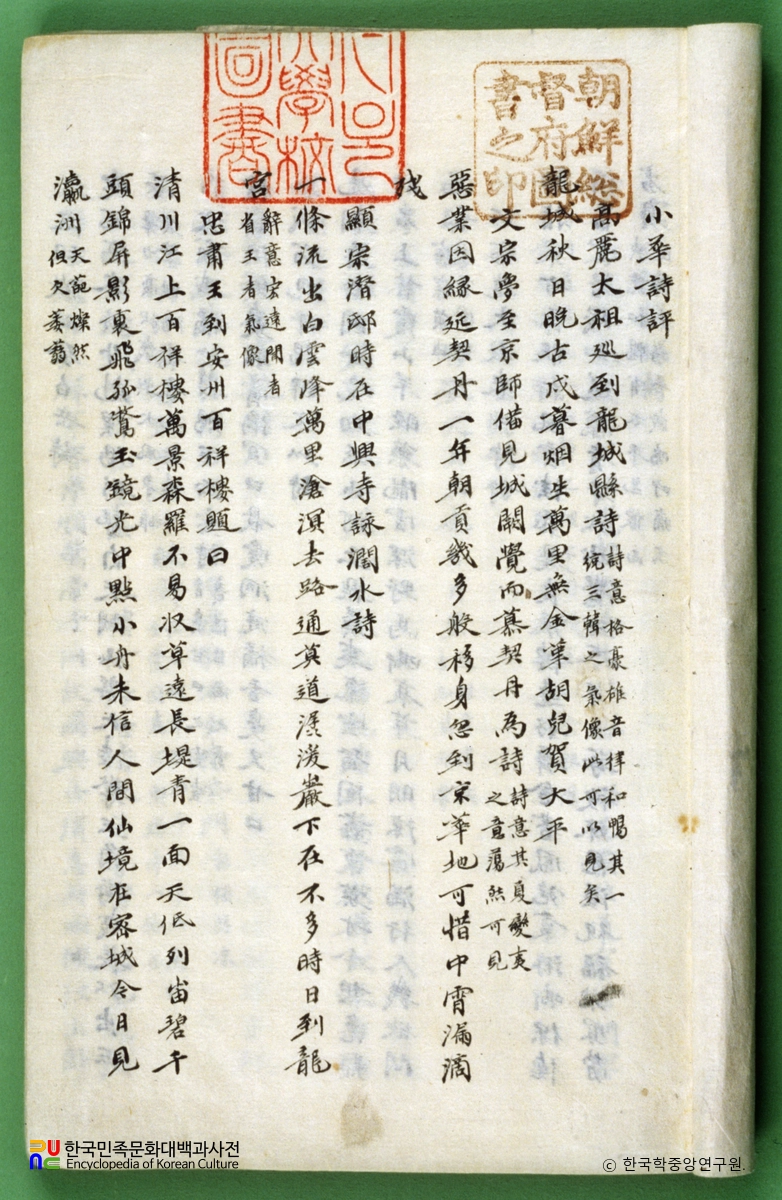 小華詩評
高麗太祖廵到龍城縣詩 詩意格豪雄音律和暢其一
統三韓之氣像此可以見矣
龍城秋日晚古戍暮烟生萬里無金革胡兒賀太平
文宗夢至京師俻見城闕覺而慕契丹為詩 詩意其夏變夷
之意蕩然可見
惡業因緣近契丹一年朝貢幾多般移身忽到京華地可惜中宵漏滴
残
顯宗潛邸時在中興寺詠澗水詩
一條流出白雲峰萬里滄溟去路通莫道潺湲巖下在不多時日到龍
宮 辭意宏遠開者
省王者氣像
忠肅王到安州百祥樓題曰
清川江上百祥樓萬景森羅不易収草遠長堤青一面天低列峀碧千
頭錦屏影裏飛孤鶩玉鏡光中點小舟未信人間仙境在密城今日見
瀛洲 天葩燦然
但欠萎蒻
朝鮮総
督府圖
書之印
大學校
圖書
한국민족문화대백과사전
Encyclopedia of Korean Culture
ⓒ 한국학중앙연구원.